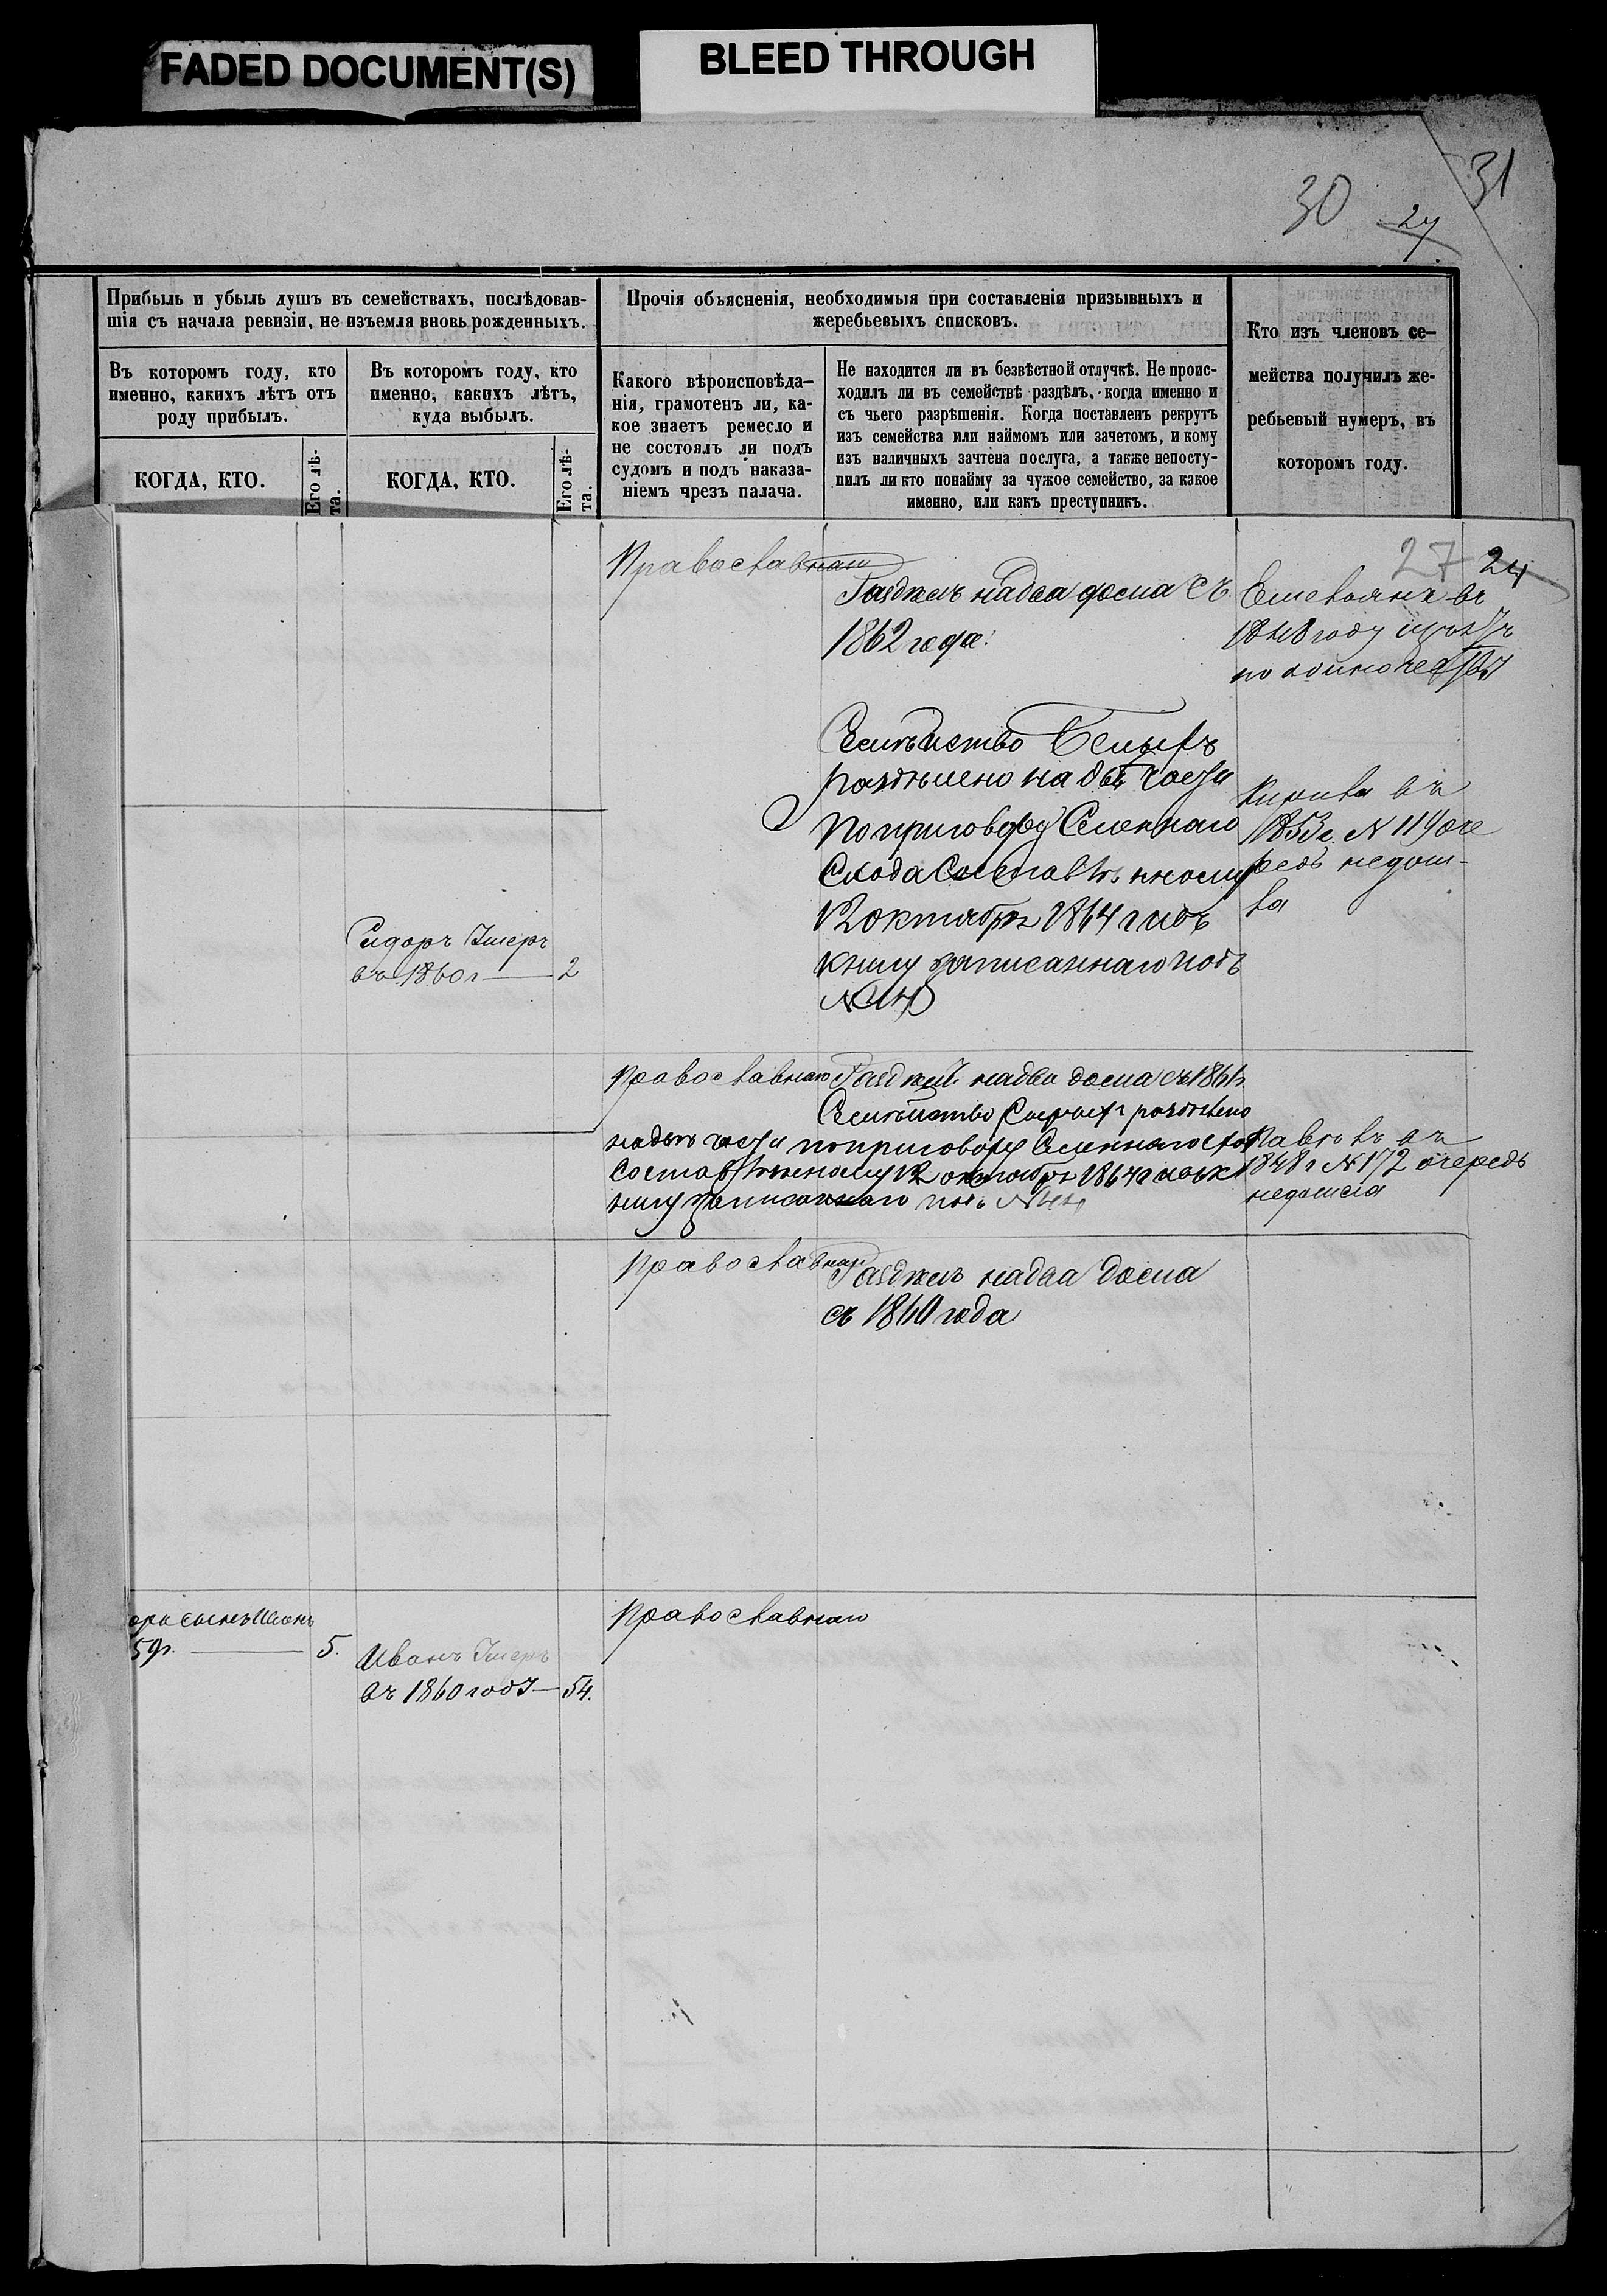 FADED DOCUMENT(S)
BLEED THROUGH
30
27
31
Прибыль и убыль душъ въ семействахъ, послѣдовав-
шія съ начала ревизіи, не изъемля вновь рожденныхъ.
Прочія объясненія, необходимыя при составленіи призывныхъ и
жеребьевыхъ списковъ.
Кто изъ членовъ се-
мейства получилъ же-
ребьевый нумеръ, въ
которомъ году.
Въ которомъ году, кто
именно, какихъ лѣтъ отъ
роду прибылъ.
Въ которомъ году, кто
именно, какихъ лѣтъ,
куда выбылъ.
Какого вѣроисповѣда-
нія, грамотенъ ли, ка-
кое знаетъ ремесло и
не состоялъ ли подъ
судомъ и подъ наказа-
ніемъ чрезъ палача.
Не находится ли въ безвѣстной отлучкѣ. Не проис-
ходилъ ли въ семействѣ раздѣлъ, когда именно и
съ чьего разрѣшенія. Когда поставленъ рекрутъ
изъ семейства или наймомъ или зачетомъ, и кому
изъ наличныхъ зачтена послуга, а также непосту-
пилъ ли кто понайму за чужое семейство, за какое
именно, или какъ преступникъ.
КОГДА, КТО.
Его лѣ-
та.
КОГДА, КТО.
Его лѣ-
та.
27 24
Православнаго
на два дома съ
1862 года.
Емельянъ въ
1848 году
по
Семѣйство
раздѣлено на двѣ части
по приговору Селеннаго
Схода Составленному
12 октября 1864 г
книгу записаннаго подъ
Кирила въ
1853 г. N 119 оче
редь недош-
ла
Сидоръ Умеръ
въ 1860 г 2
Православнаго
на два дома съ 1861
Семѣйство раздѣлено
на двѣ части по приговору Селеннаго
Составленному 12 октября 1864 г
книгу записаннаго подъ
Павелъ въ
1848 г N 172 очередь
недошла
Православнаго
на два дома
съ 1860 года
Православнаго
59 г. 5.
Иванъ Умеръ
въ 1860 году 54.